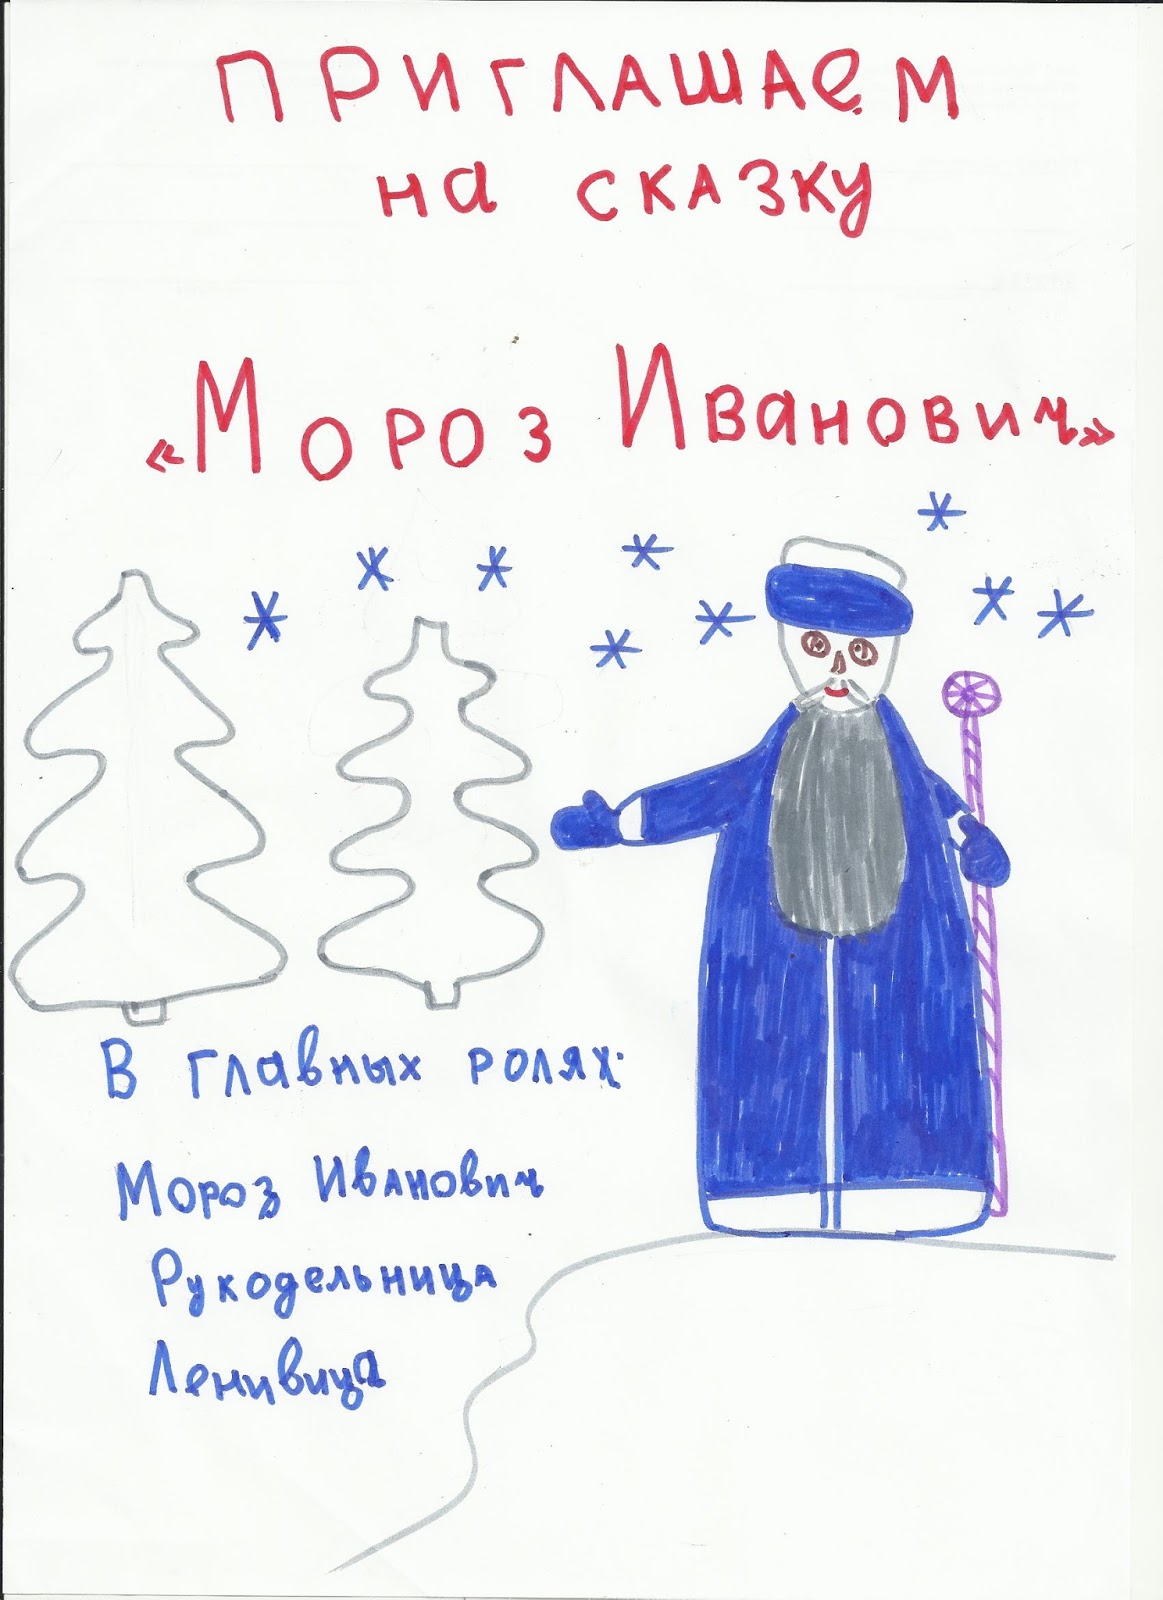 ПРИГЛАШАЕМ
на сказку
«Мороз Иванович»
В главных ролях:
Мороз Иванович
Рукодельница
Ленивица